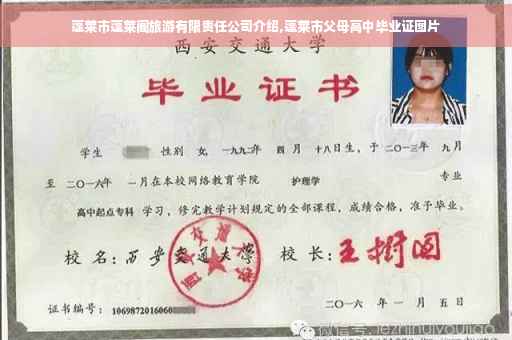 蓬莱市蓬莱阁旅游有限责任公司介绍,蓬莱市父母高中毕业证图片
西安交通大学
毕业证书
学生 性别 女, 一九九二年 四 月 十八日生, 于 二〇一三年 九 月
至 二〇一六年 一 月在本校网络教育学院 护理学 专业
高中起点专科 学习, 修完教学计划规定的全部课程, 成绩合格, 准予毕业。
校 名: 西安交通大学 校 长: 王树国
西安交通大学
证书编号: 1069872016060
二〇一六 年 一 月 五 日
微信号: jezhihuiyoujiao